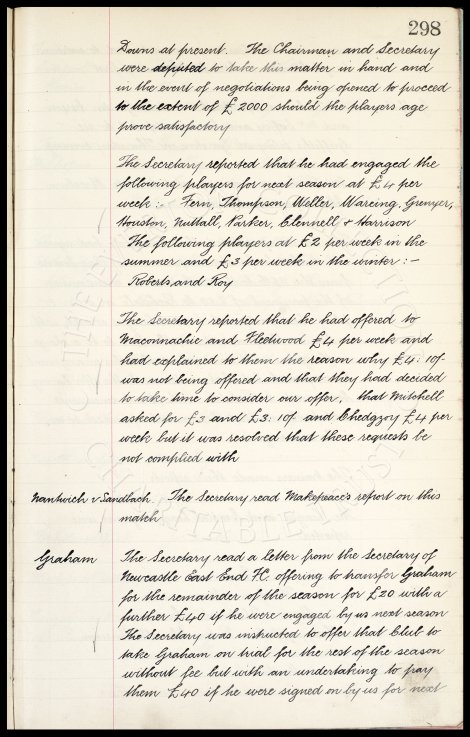 298
Downs at present. The Chairman and Secretary
were deputed to take this matter in hand and
in the event of negotiations being opened to proceed
to the extent of £2000 should the players age
prove satisfactory
The Secretary reported that he had engaged the
following players for next season at £4 per
week :- Fern, Thompson, Weller, Wareing, Grenyer,
Houston, Nuttall, Parker, Clennell & Harrison
The following players at £2 per week in the
summer and £3 per week in the winter :-
Roberts, and Roy
The Secretary reported that he had offered to
Maconnachie and Fleetwood £4 per week and
had explained to them the reason why £4:10/-
was not being offered and that they had decided
to take time to consider our offer, that Mitchell
asked for £3 and £3:10/- and Chedgzoy £4 per
week but it was resolved that these requests be
not complied with
Nantwich v Sandbach The Secretary read Makepeace's report on this
match
Graham The Secretary read a letter from the Secretary of
Newcastle East End FC. offering to transfer Graham
for the remainder of the season for £20 with a
further £40 if he were engaged by us next season
The Secretary was instructed to offer that Club to
take Graham on trial for the rest of the season
without fee but with an undertaking to pay
them £40 if he were signed on by us for next